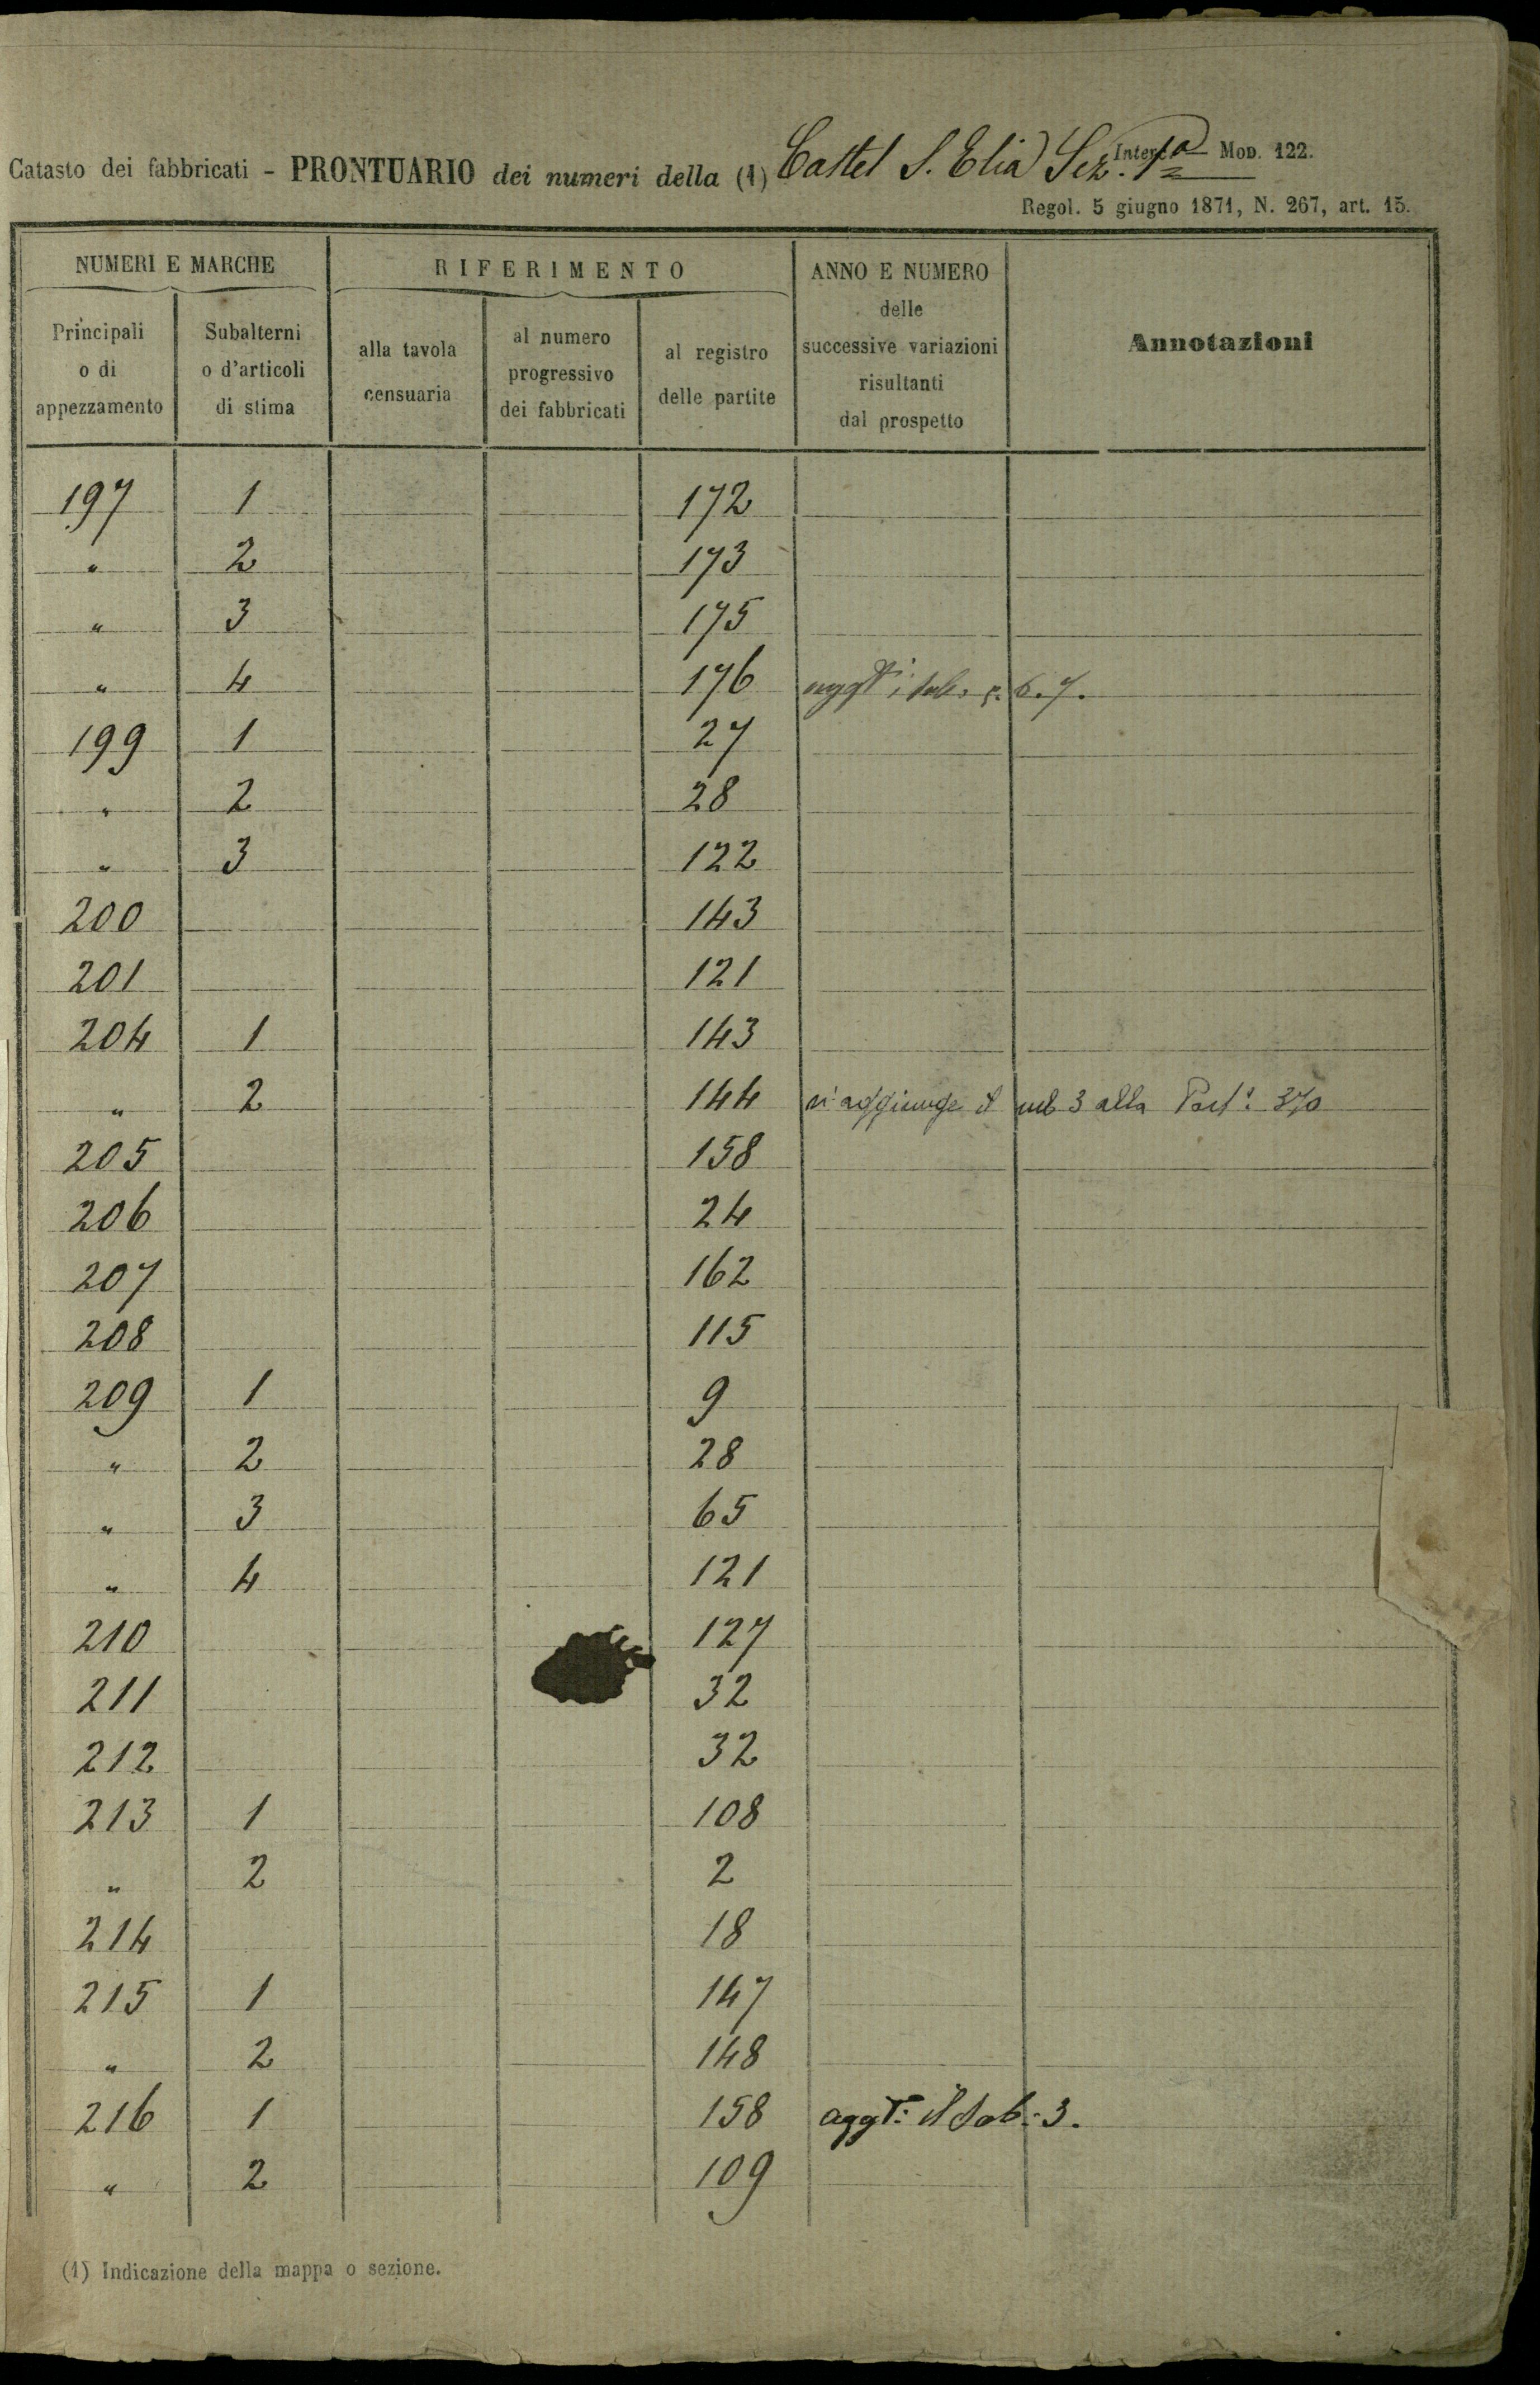 Catasto dei fabbricati - PRONTUARIO dei numeri della (1) Castel S. Elia Sez. 1a Mod. 122.
Regol. 5 giugno 1871, N. 267, art. 15.
NUMERI E MARCHE
RIFERIMENTO
ANNO E NUMERO delle successive variazioni risultanti dal prospetto
Annotazioni
Principali o di appezzamento
Subalterni o d'articoli di stima
alla tavola censuaria
al numero progressivo dei fabbricati
al registro delle partite
197 1 172
" 2 173
" 3 175
" 4 176 aggti i sub. 5. 6. 7.
199 1 27
" 2 28
" 3 122
200 143
201 121
204 1 143
" 2 144 si aggiunge il sub 3 alla Part: 370
205 158
206 24
207 162
208 115
209 1 9
" 2 28
" 3 65
" 4 121
210 127
211 32
212 32
213 1 108
" 2 2
214 18
215 1 147
" 2 148
216 1 158 aggt: il sub: 3.
" 2 109
(1) Indicazione della mappa o sezione.